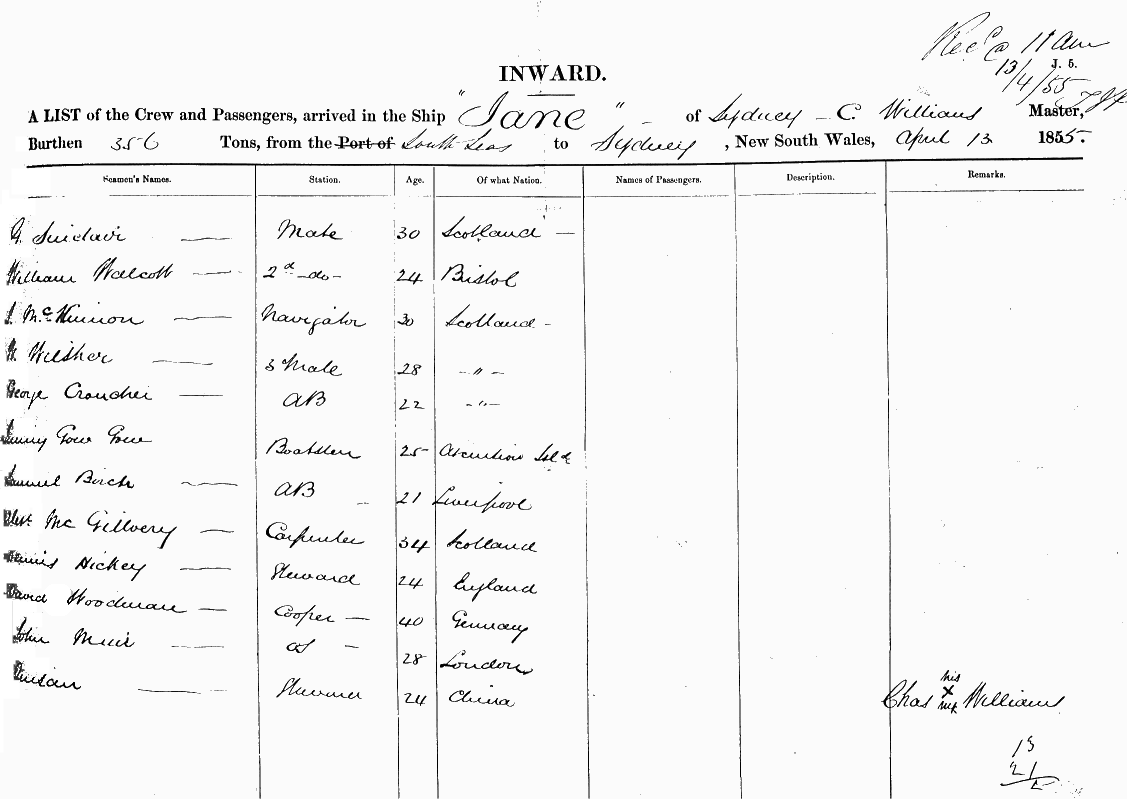 Rec'd @ 11 am
J. 5.
13/4/55
INWARD.
A LIST of the Crew and Passengers, arrived in the Ship "Jane" of Sydney - C. Williams Master,
Burthen 356 Tons, from the Port of South Seas to Sydney, New South Wales, April 13 1855.
Seamen's Names. Station. Age. Of what Nation. Names of Passengers. Description. Remarks.
Sinclair — Mate 30 Scotland —
William Walcott — 2d -do- 24 Bristol
McKinnon — Navigator 30 Scotland -
Wilsher — 3 Mate 28 - " -
George Croucher — AB 22 - " -
Gow Gow Boatsteer 25 Ascention Isld
Samuel Birch — AB 21 Liverpool
McGillvery — Carpenter 34 Scotland
Dennis Hickey — Steward 24 England
David Woodman — Cooper — 40 Germany
John Muir — OS - 28 London
— 24 China
his
Chas X Williams
mk
13
21